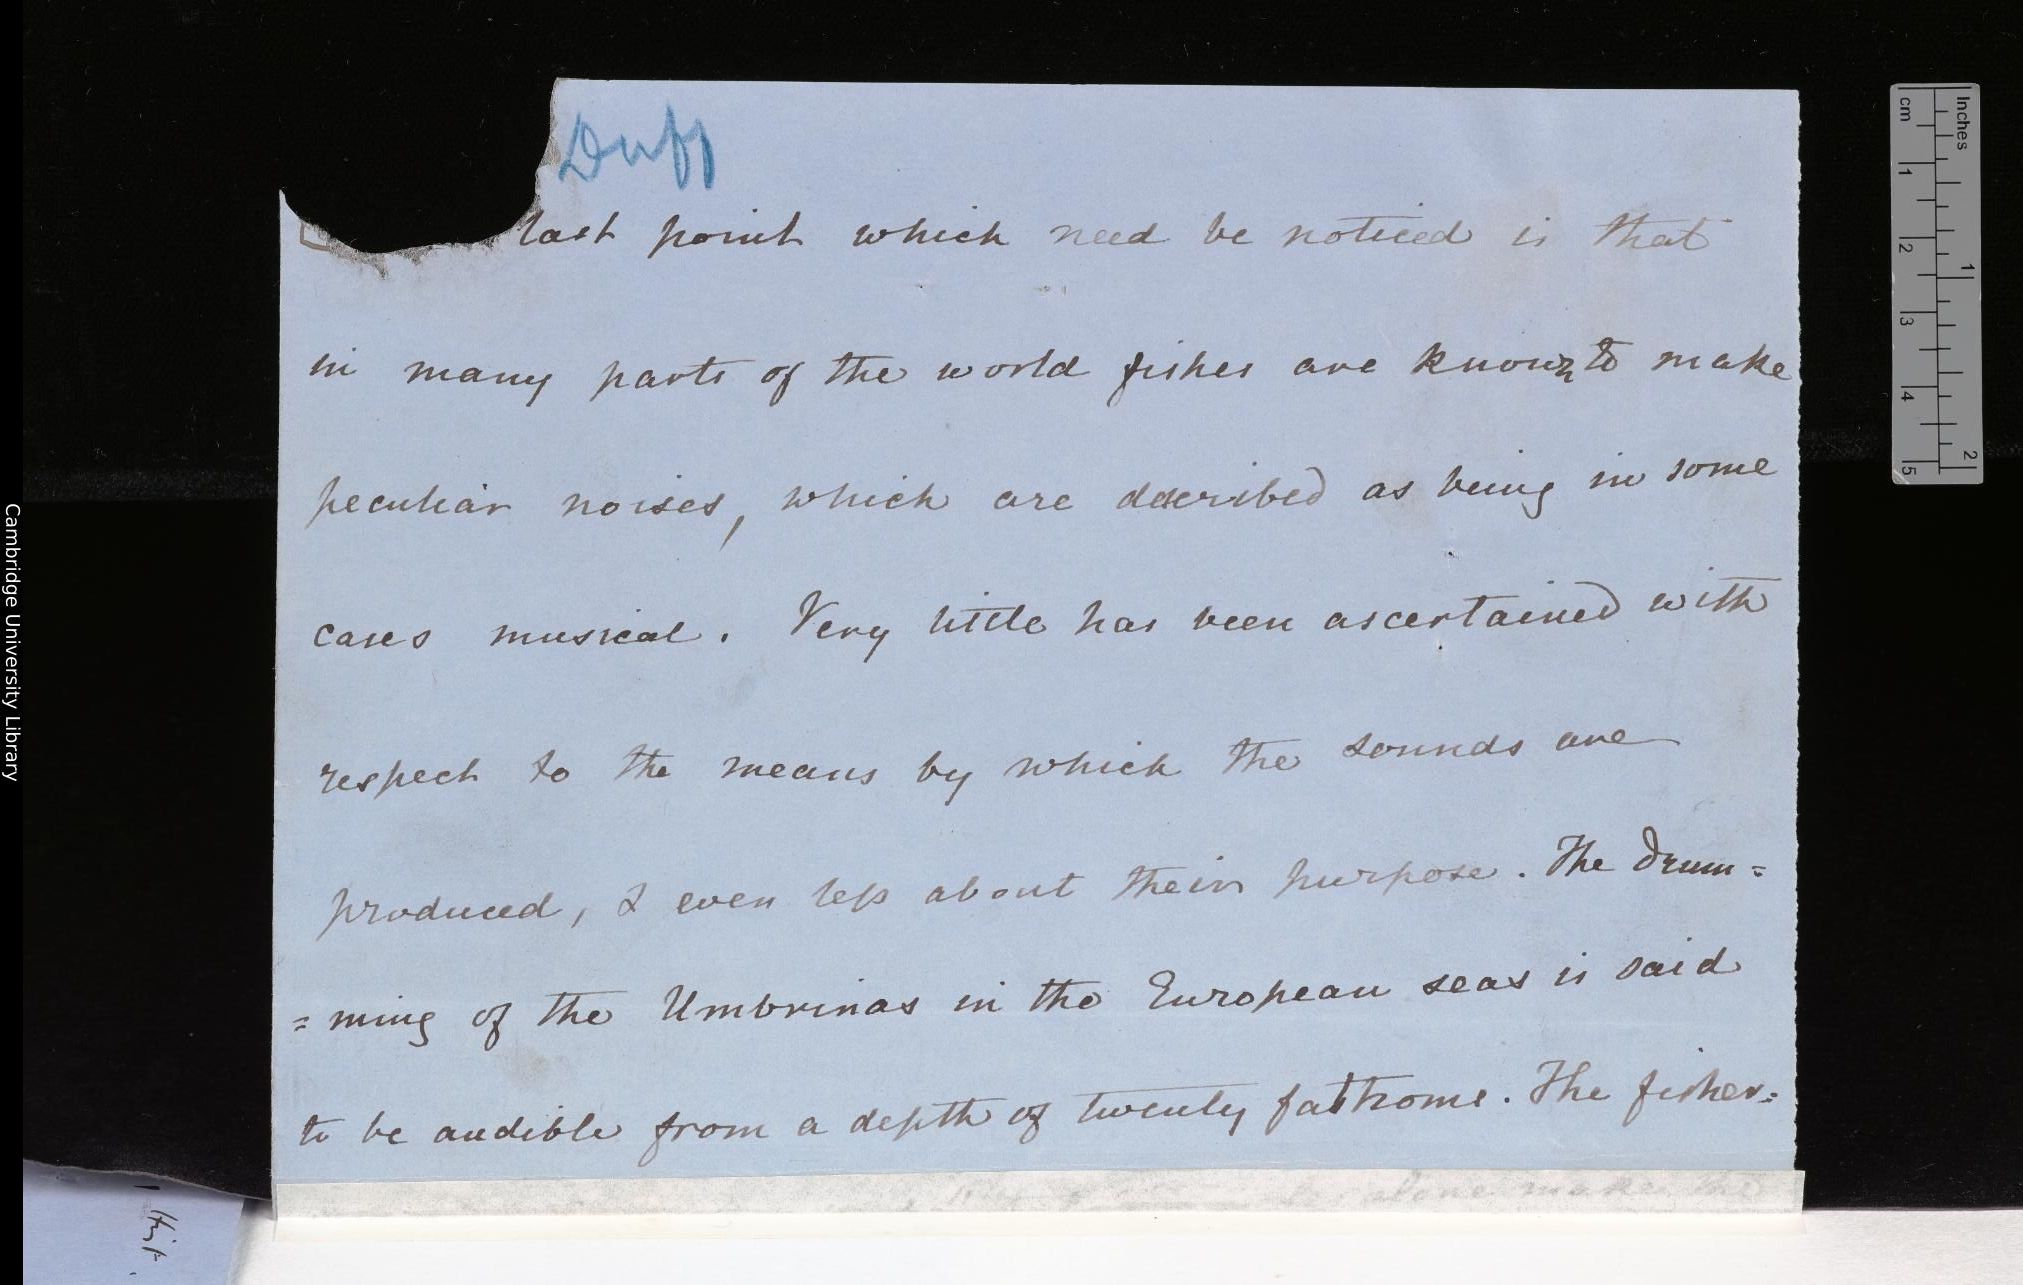 Duff
last point which need be noticed is that
in many parts of the world fishes are known to make
peculiar noises, which are described as being in some
cases musical. Very little has been ascertained with
respect to the means by which the sounds are
produced, & even less about their purpose. The drum=
=ming of the Umbrinas in the European seas is said
to be audible from a depth of twenty fathoms. The fisher=
alone make the
Cambridge University Library
Inches
cm
1
2
3
4
5
1
2